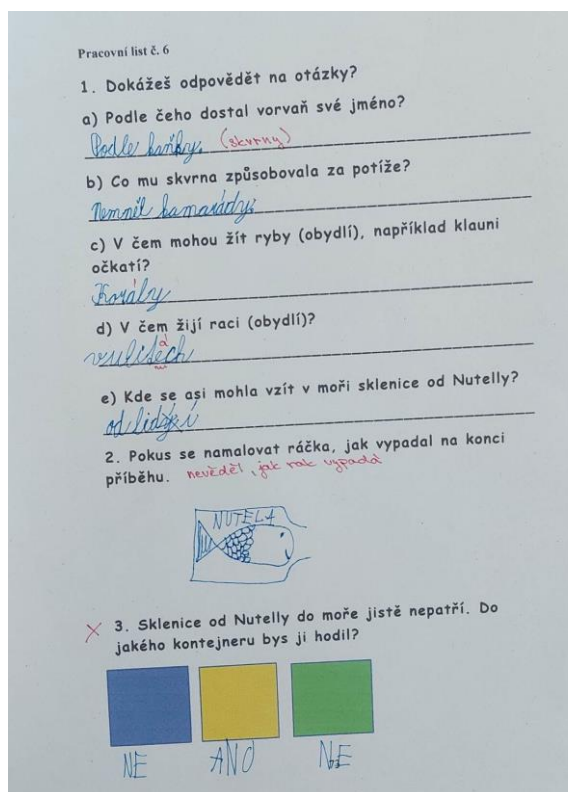 Pracovní list č. 6
1. Dokážeš odpovědět na otázky?
a) Podle čeho dostal vorvaň své jméno?
Podle kaňky. (skvrny)
b) Co mu skvrna způsobovala za potíže?
Nemněl kamarády.
c) V čem mohou žít ryby (obydlí), například klauni
očkatí?
Korály
d) V čem žijí raci (obydlí)?
e) Kde se asi mohla vzít v moři sklenice od Nutelly?
od lidí
2. Pokus se namalovat ráčka, jak vypadal na konci
příběhu. nevěděl, jak rak vypadá
NUTELA
X 3. Sklenice od Nutelly do moře jistě nepatří. Do
jakého kontejneru bys ji hodil?
NE ANO NE